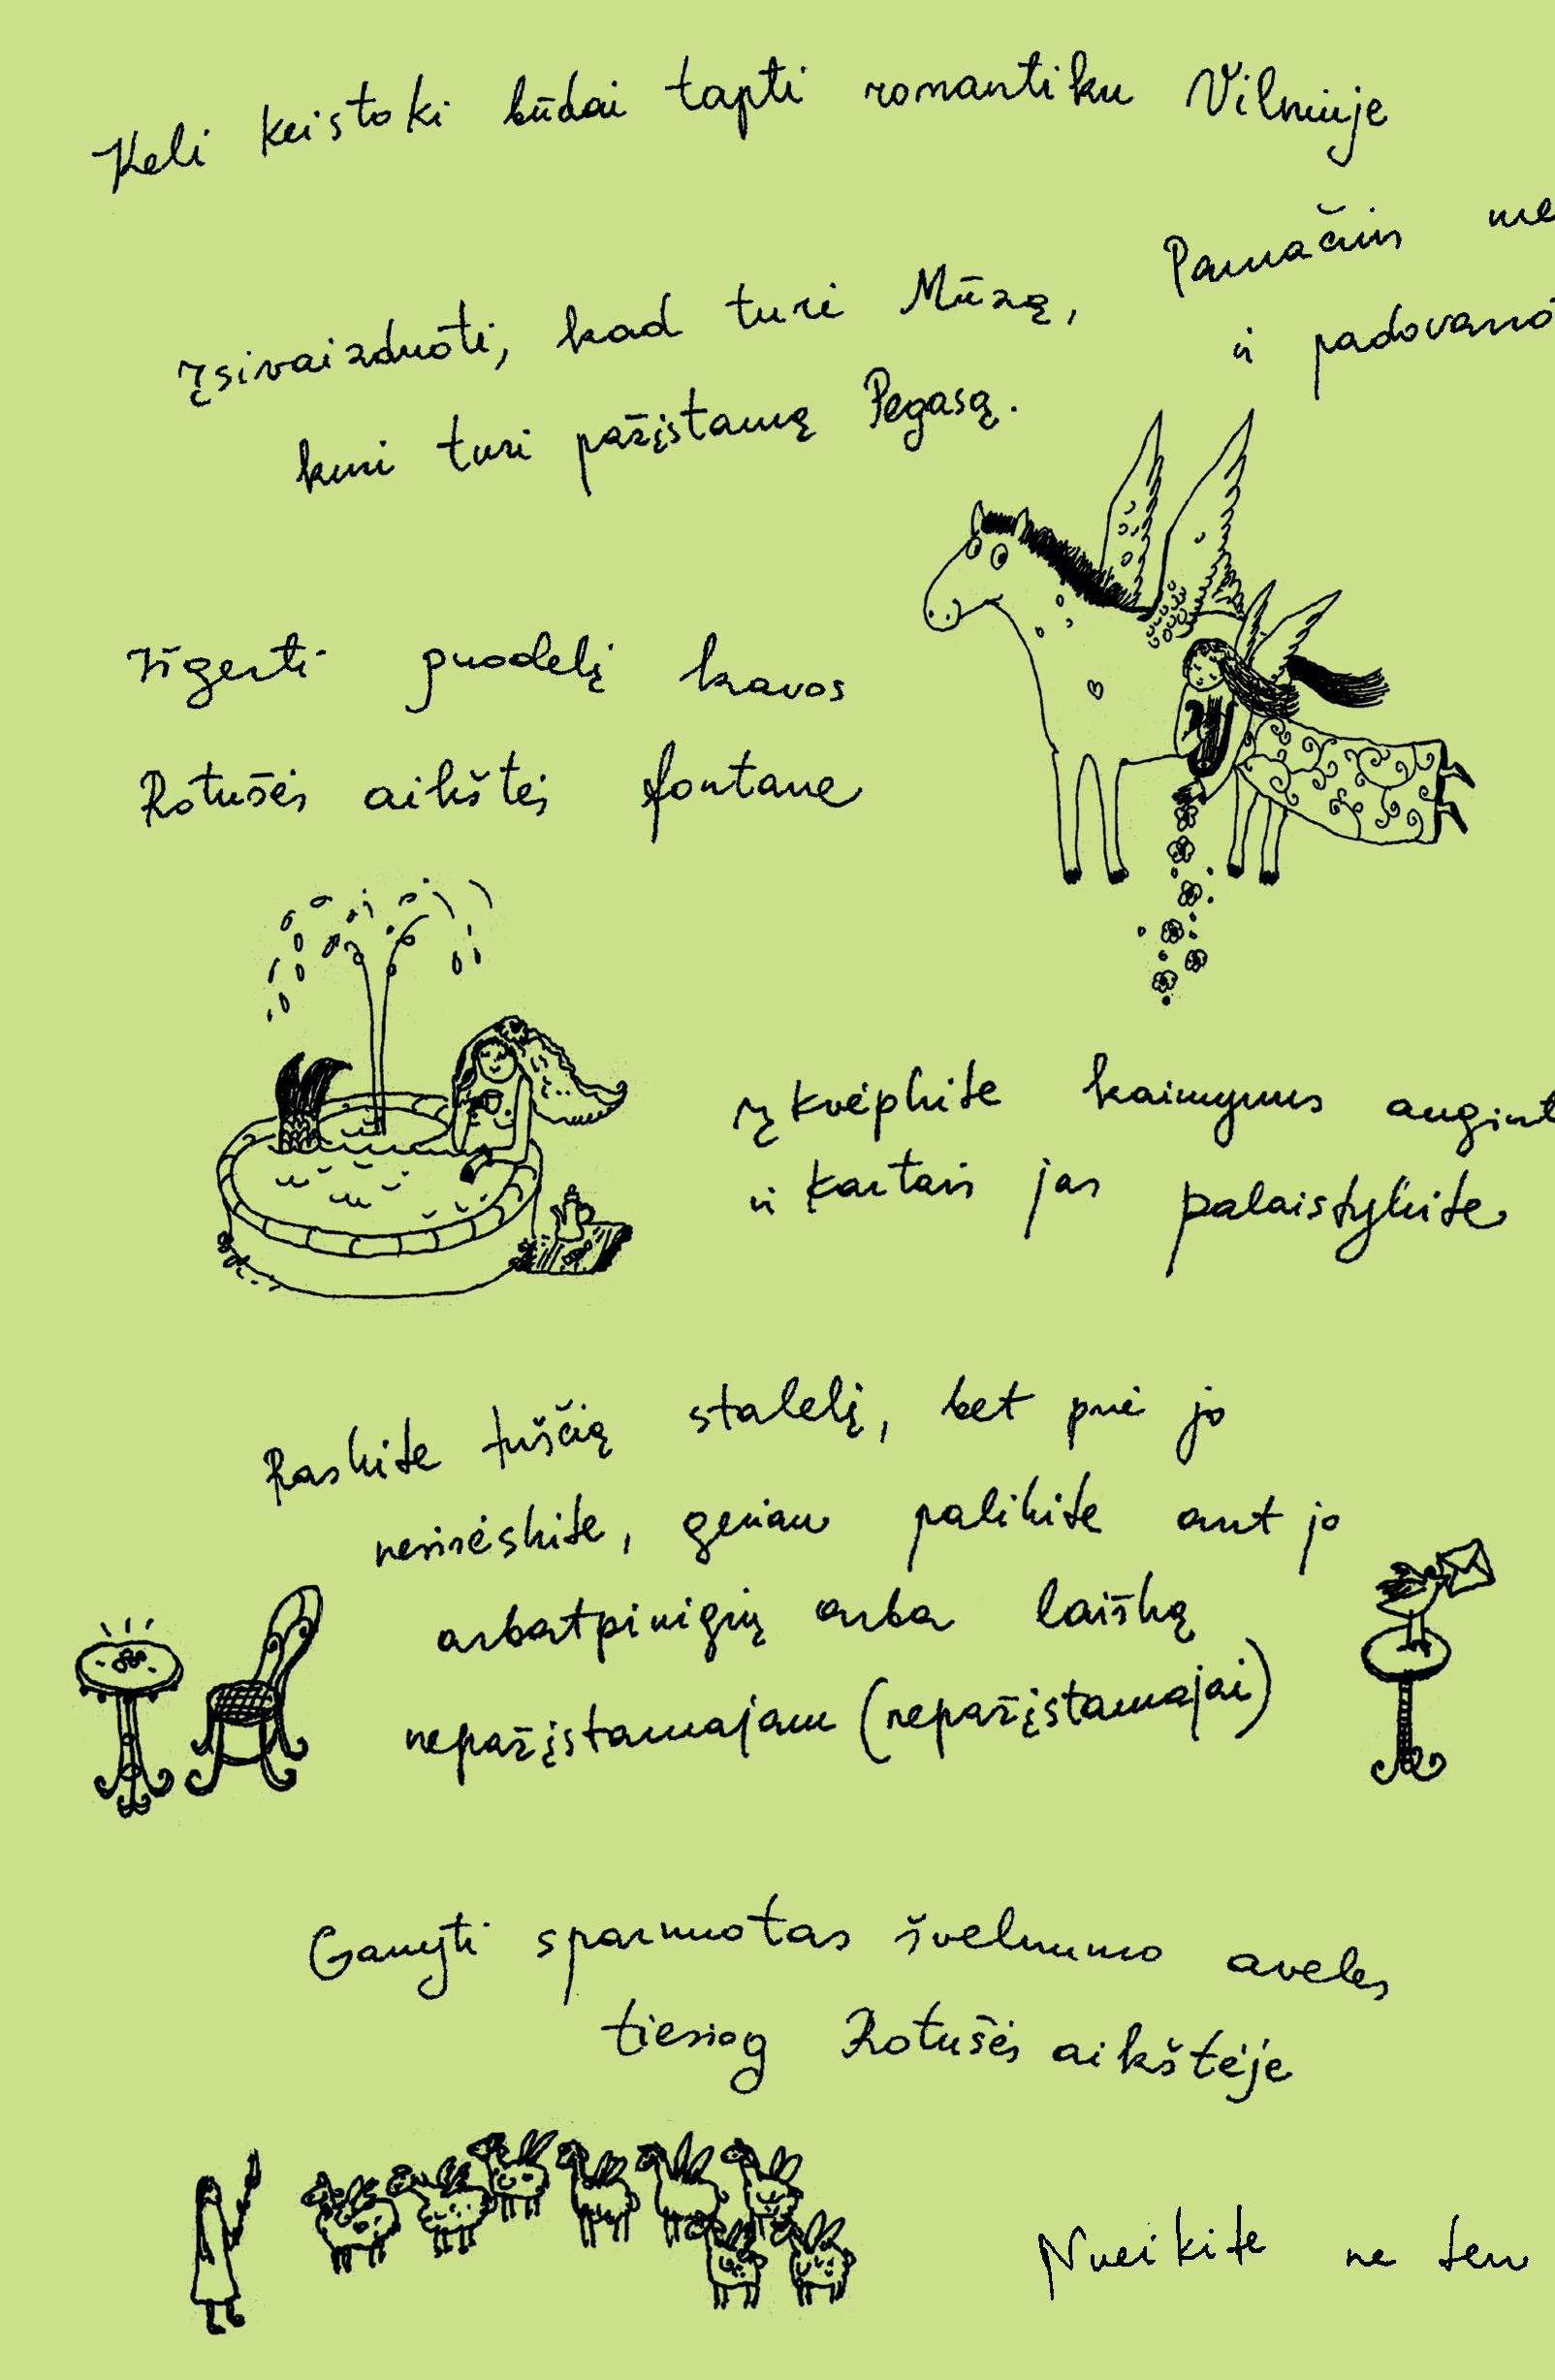 Keli keistoki būdai tapti romantiku Vilniuje
Įsivaizduoti, kad turi Mūzą,
kuri turi pažįstamą Pegasą.
Pamačius
ir
Išgerti puodelį kavos
Rotušės aikštės fontane
Įkvėpkite kaimynus
ir kartais jas palaistykite
Raskite tuščią stalelį, bet prie jo
nesisėskite, geriau palikite ant jo
arbatpinigių arba laišką
nepažįstamajam (nepažįstamajai)
Ganyti sparnuotas švelnumo aveles
tiesiog Rotušės aikštėje
Nueikite ne ten